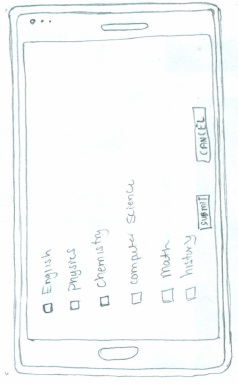 English
physics
chemistry
computer science
math
history
SUBMIT
CANCEL